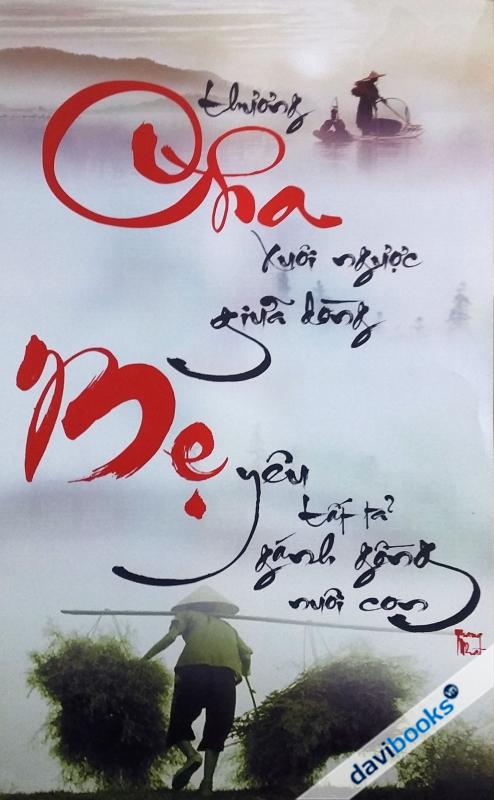 thương
Cha
Xuôi ngược
giữa dòng
Mẹ yêu
tất tả
gánh gồng
nuôi con
davibooks.vn